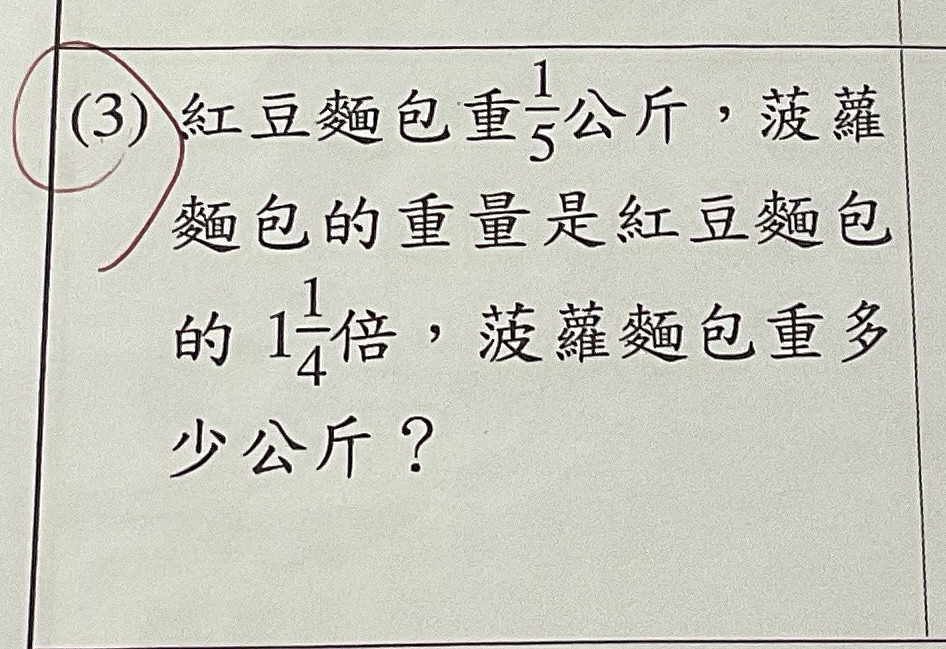 (3) 紅豆麵包重1/5公斤，菠蘿
麵包的重量是紅豆麵包
的 1 1/4倍，菠蘿麵包重多
少公斤？